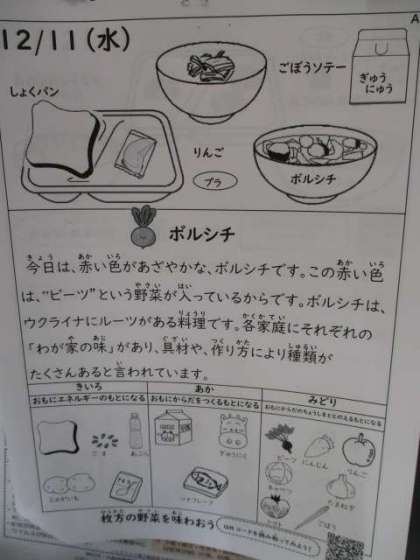 A
12/11(水)
ごぼうソテー
ぎゅう
にゅう
しょくパン
りんご
プラ
ボルシチ
ボルシチ
今日は、赤い色があざやかな、ボルシチです。この赤い色
は、“ビーツ”という野菜が入っているからです。ボルシチは、
ウクライナにルーツがある料理です。各家庭にそれぞれの
「わが家の味」があり、具材や、作り方により種類が
たくさんあると言われています。
きいろ
おもにエネルギーのもとになる
あか
おもにからだをつくるもとになる
みどり
おもにからだのちょうしをととのえるもとになる
ごま
あぶら
じゃがいも
ぎゅうにく
ツナフレーク
ビーツ
にんじん
りんご
キャベツ
たまねぎ
トマト
ごぼう
枚方の野菜を味わおう
QRコードを読み取ってみよう!